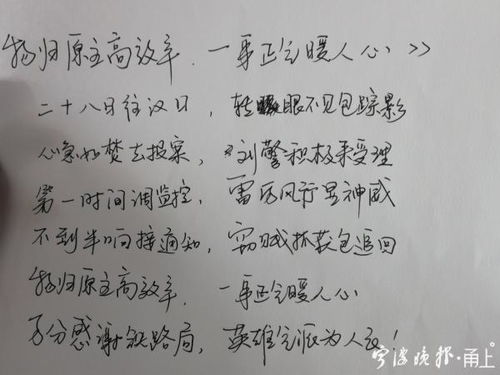 物归原主高效率.一身正气暖人心>>
二十八日往汉日,转眼不见包踪影
心急如焚去报案,刘警积极来受理
第一时间调监控,雷厉风行显神威
不到半响接通知,窃贼抓获包追回
物归原主高效率.一身正气暖人心
万分感谢铁路局,英雄气派为人民!
宁波晚报·甬上